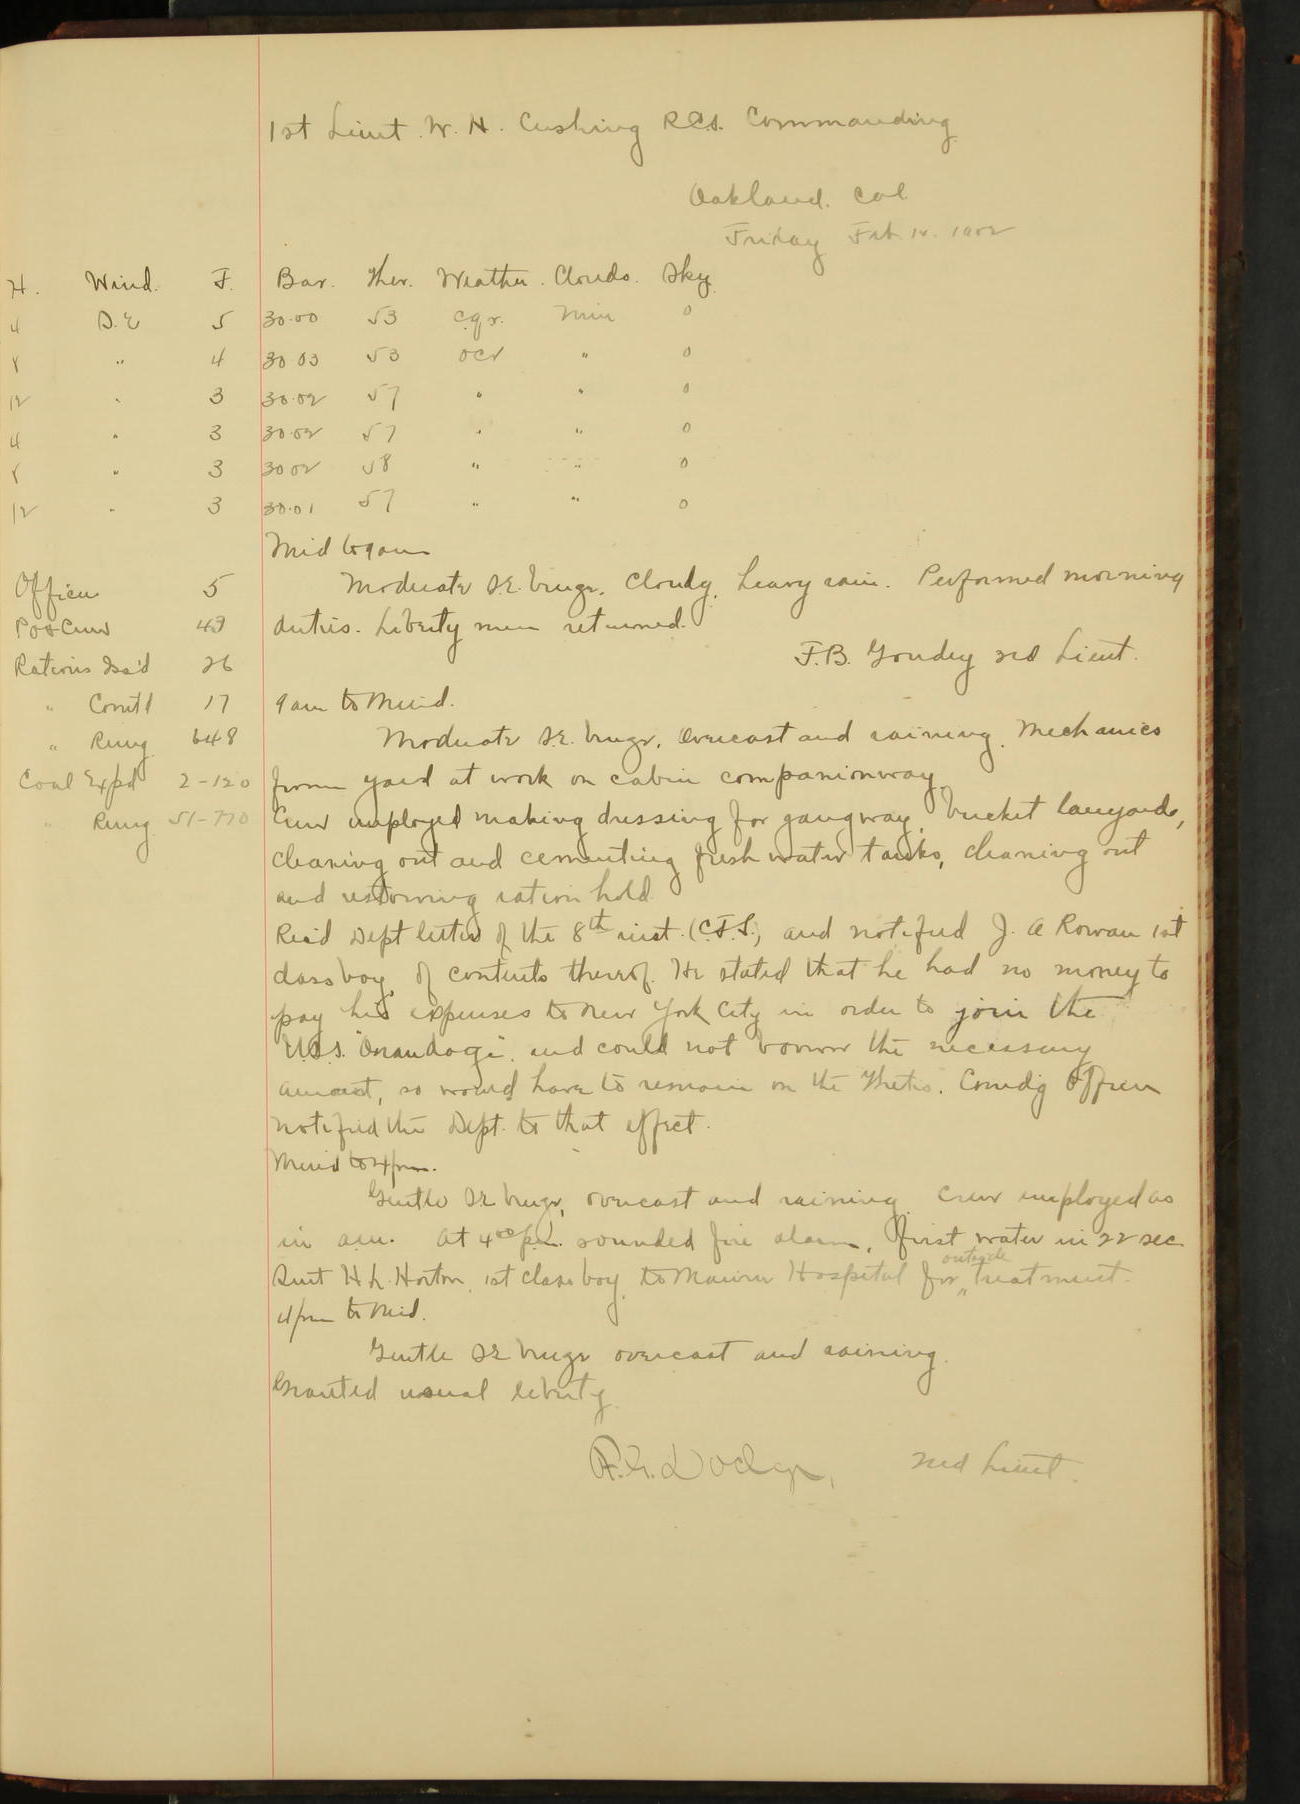 1st Lieut. W. H. Cushing R.C.S. Commanding
Oakland. Cal
Friday Feb. 14. 1902
H. Wind. F. Bar. Ther. Weather. Clouds. Sky
4 S.E 5 30.00 53 c.q.r. Nim 0
8 " 4 30 03 53 ocr " 0
12 " 3 30.02 57 " " 0
4 " 3 30.02 57 " " 0
8 " 3 30 02 58 " " 0
12 " 3 30.01 57 " " 0
Mid to 9 am
Officers 5
Moderate S.E. breeze. Cloudy, heavy rain. Performed morning
PO & Crew 43
duties. Liberty men returned.
F.B. Goudey 2nd Lieut.
Rations Iss'd 26
" Com't'd 17
9 am to Merid.
" Remg 648
Moderate S.E. breeze, overcast and raining. Mechanics
Coal Exp'd 2-120
from yard at work on cabin companionway.
" Remg 51-770
Crew employed making dressing for gangway, bucket lanyards,
cleaning out and cementing fresh water tanks, cleaning out
and restowing ration hold.
Rec'd Dept letter of the 8th inst. (C.F.S.) and notified J. A Rowan 1st
class boy, of contents thereof. He stated that he had no money to
pay his expenses to New York City in order to join the
U.S.S. "Onandaga", and could not borrow the necessary
amount, so would have to remain on the Thetis. Comdg Officer
notified the Dept. to that effect.
Merid to 4 pm.
Gentle SE breeze, overcast and raining. Crew employed as
in a.m. At 4 00 p.m. sounded fire alarm, first water in 22 sec
Sent H. L. Horton, 1st class boy, to Marine Hospital for outside treatment.
4 pm to Mid.
Gentle SE breeze overcast and raining.
Granted usual liberty.
Dodge, 2nd Lieut.